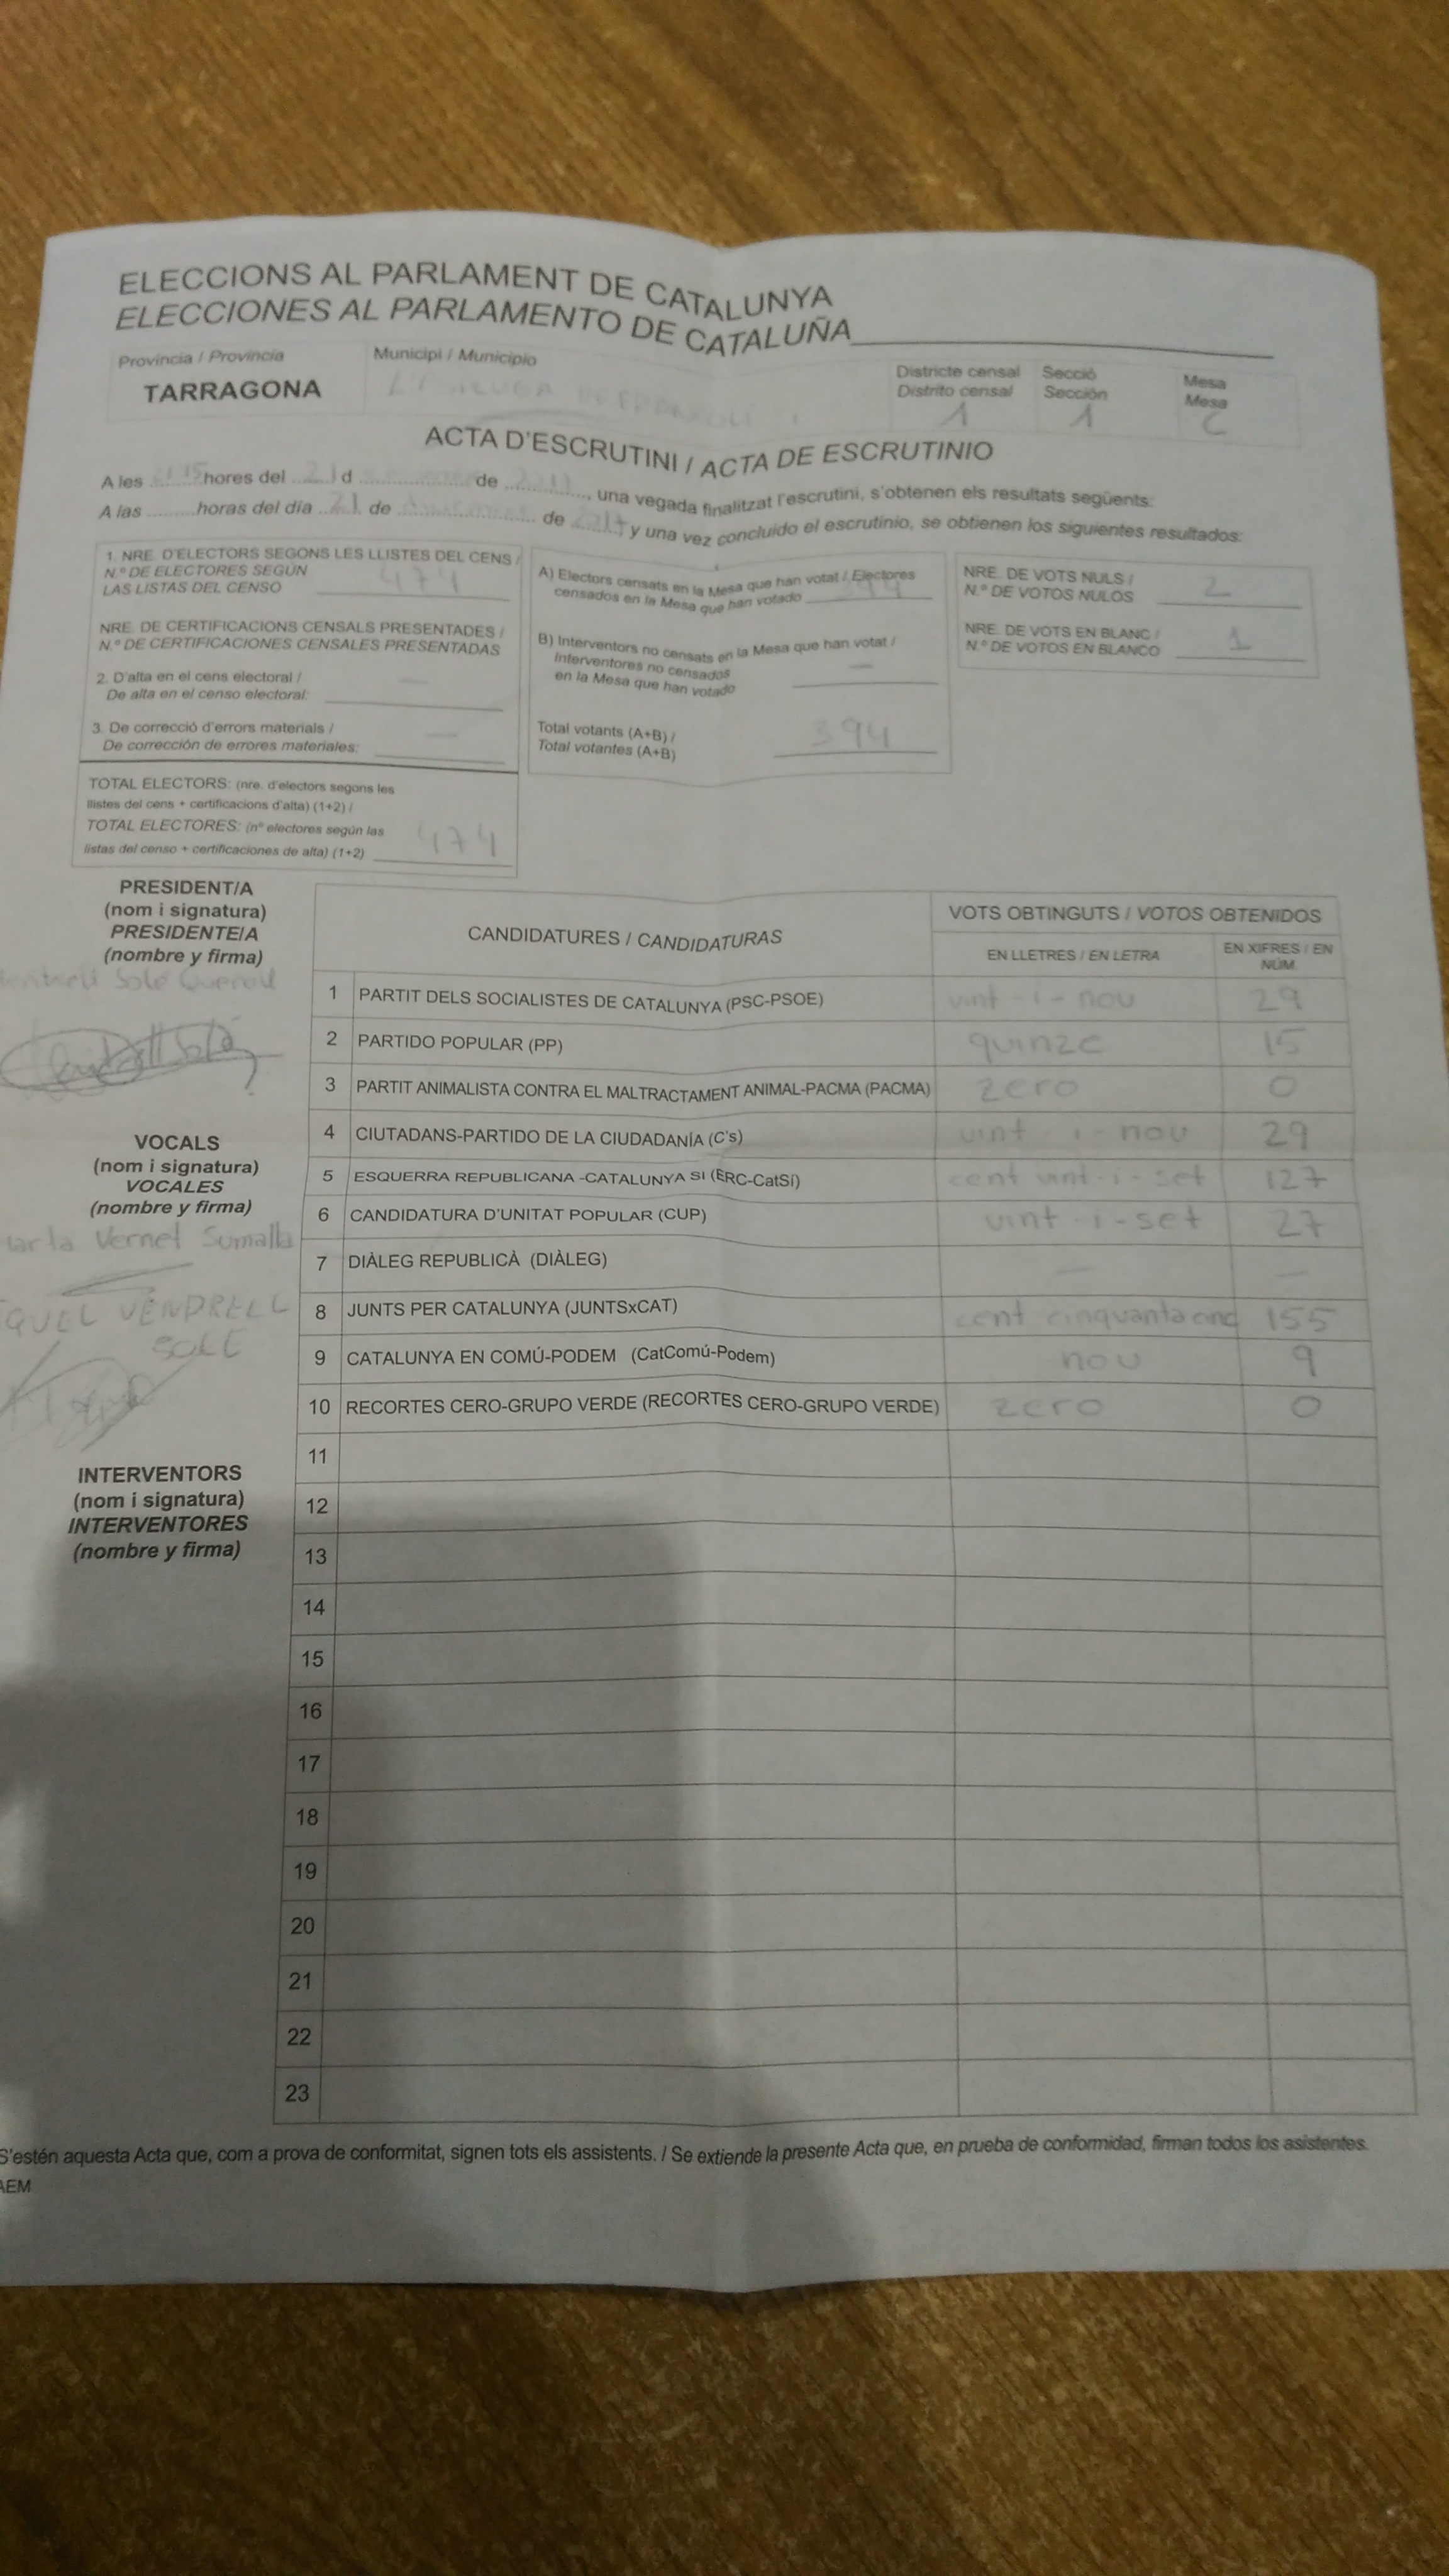 ELECCIONS AL PARLAMENT DE CATALUNYA
ELECCIONES AL PARLAMENTO DE CATALUÑA
Província / Provincia
Municipi / Municipio
Districte censal
Distrito censal
Secció
Sección
Mesa
Mesa
TARRAGONA
1
1
ACTA D'ESCRUTINI / ACTA DE ESCRUTINIO
A les hores del 21 d de , una vegada finalitzat l'escrutini, s'obtenen els resultats següents:
A las horas del día 21 de de 2017 y una vez concluido el escrutinio, se obtienen los siguientes resultados:
1. NRE. D'ELECTORS SEGONS LES LLISTES DEL CENS /
N.º DE ELECTORES SEGÚN
LAS LISTAS DEL CENSO 474
NRE. DE CERTIFICACIONS CENSALS PRESENTADES /
N.º DE CERTIFICACIONES CENSALES PRESENTADAS
2. D'alta en el cens electoral / —
De alta en el censo electoral:
3. De correcció d'errors materials / —
De corrección de errores materiales:
TOTAL ELECTORS: (nre. d'electors segons les
llistes del cens + certificacions d'alta) (1+2) /
TOTAL ELECTORES: (nº electores según las
listas del censo + certificaciones de alta) (1+2) 474
A) Electors censats en la Mesa que han votat / Electores
censados en la Mesa que han votado 394
B) Interventors no censats en la Mesa que han votat /
Interventores no censados
en la Mesa que han votado —
Total votants (A+B) /
Total votantes (A+B) 394
NRE. DE VOTS NULS /
N.º DE VOTOS NULOS 2
NRE. DE VOTS EN BLANC /
N.º DE VOTOS EN BLANCO 1
PRESIDENT/A
(nom i signatura)
PRESIDENTE/A
(nombre y firma)
Solé Querol
VOCALS
(nom i signatura)
VOCALES
(nombre y firma)
Vernet Sumalla
VENDRELL
SOLE
INTERVENTORS
(nom i signatura)
INTERVENTORES
(nombre y firma)
CANDIDATURES / CANDIDATURAS
VOTS OBTINGUTS / VOTOS OBTENIDOS
EN LLETRES / EN LETRA
EN XIFRES / EN
NÚM.
1 PARTIT DELS SOCIALISTES DE CATALUNYA (PSC-PSOE) vint-i-nou 29
2 PARTIDO POPULAR (PP) quinze 15
3 PARTIT ANIMALISTA CONTRA EL MALTRACTAMENT ANIMAL-PACMA (PACMA) zero 0
4 CIUTADANS-PARTIDO DE LA CIUDADANÍA (C's) vint-i-nou 29
5 ESQUERRA REPUBLICANA -CATALUNYA SI (ERC-CatSí) cent vint-i-set 127
6 CANDIDATURA D'UNITAT POPULAR (CUP) vint-i-set 27
7 DIÀLEG REPUBLICÀ (DIÀLEG) — —
8 JUNTS PER CATALUNYA (JUNTSxCAT) cent cinquanta cinc 155
9 CATALUNYA EN COMÚ-PODEM (CatComú-Podem) nou 9
10 RECORTES CERO-GRUPO VERDE (RECORTES CERO-GRUPO VERDE) zero 0
11
12
13
14
15
16
17
18
19
20
21
22
23
S'estén aquesta Acta que, com a prova de conformitat, signen tots els assistents. / Se extiende la presente Acta que, en prueba de conformidad, firman todos los asistentes.
AEM